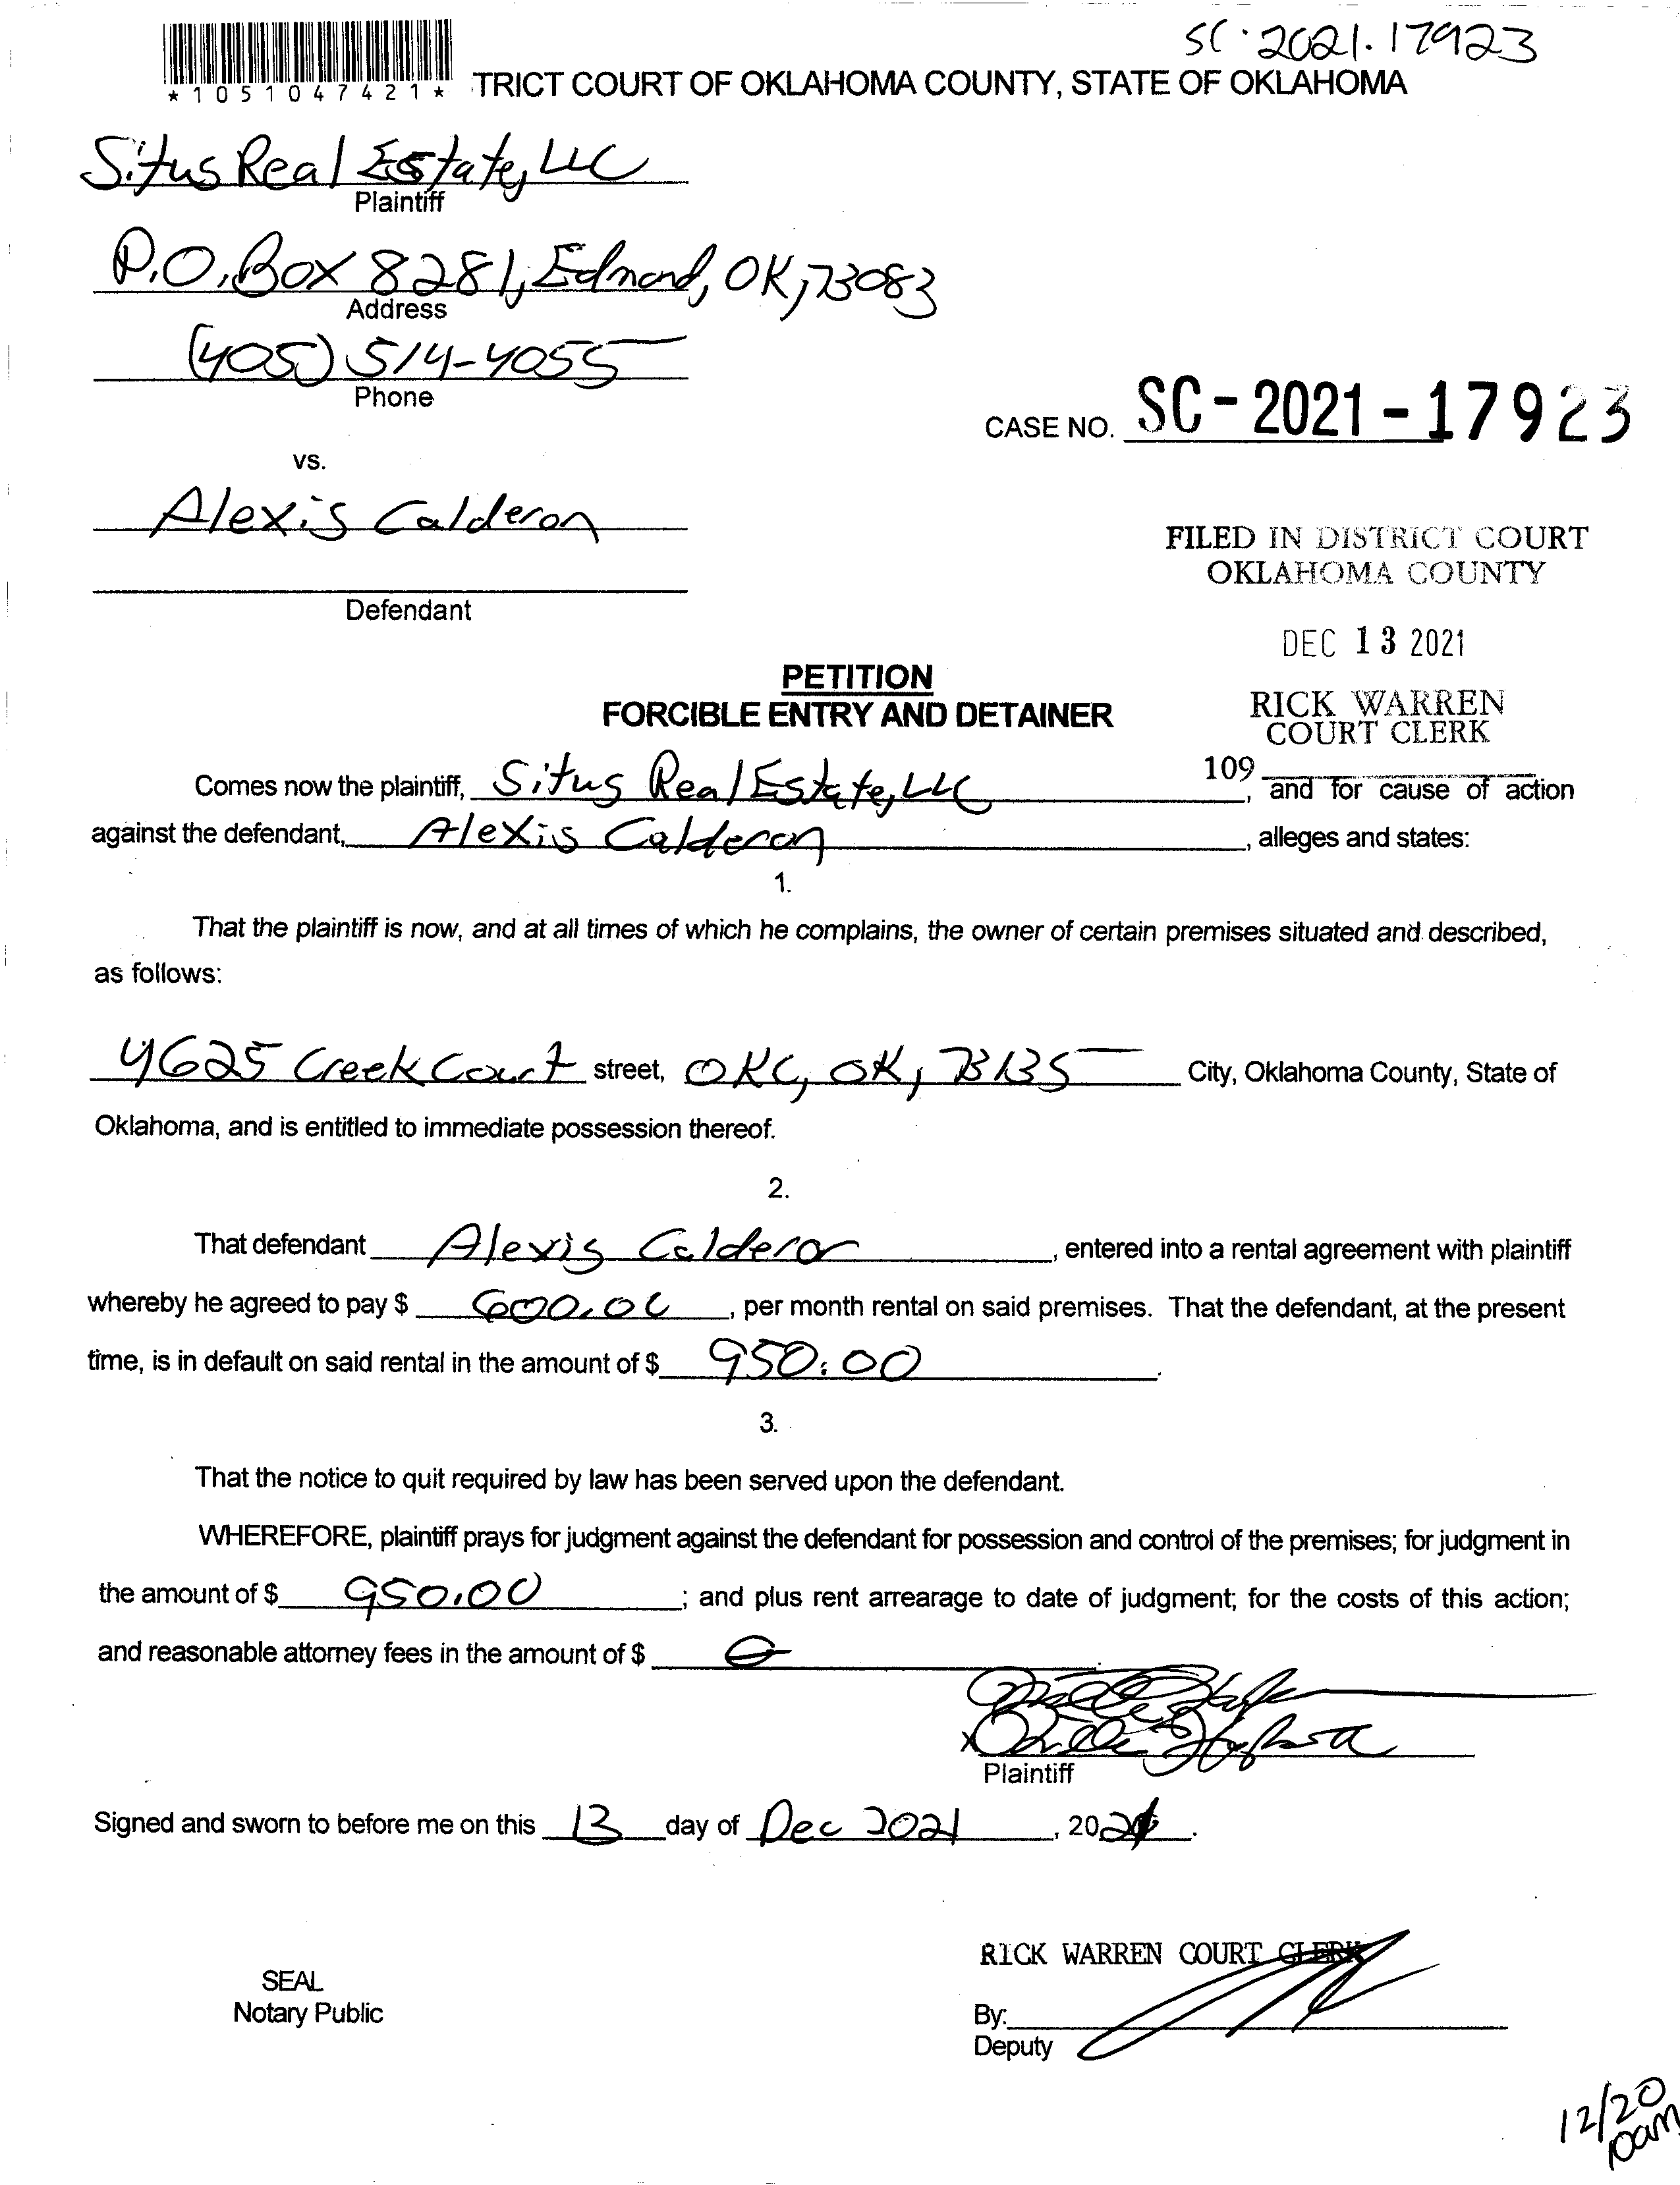 SC·2021·17923
*1051047421* TRICT COURT OF OKLAHOMA COUNTY, STATE OF OKLAHOMA
Situs Real Estate, LLC
Plaintiff
P.O. Box 8281, Edmond, OK, 73083
Address
(405) 514-4055
Phone
CASE NO. SC-2021-17923
vs.
Alexis Calderon
Defendant
FILED IN DISTRICT COURT
OKLAHOMA COUNTY
DEC 13 2021
RICK WARREN
COURT CLERK
109
PETITION
FORCIBLE ENTRY AND DETAINER
Comes now the plaintiff, Situs Real Estate, LLC, and for cause of action
against the defendant, Alexis Calderon, alleges and states:
1.
That the plaintiff is now, and at all times of which he complains, the owner of certain premises situated and described,
as follows:
4625 Creek Court street, OKC, OK, 73135 City, Oklahoma County, State of
Oklahoma, and is entitled to immediate possession thereof.
2.
That defendant Alexis Calderon, entered into a rental agreement with plaintiff
whereby he agreed to pay $ 600.00, per month rental on said premises. That the defendant, at the present
time, is in default on said rental in the amount of $ 950.00.
3.
That the notice to quit required by law has been served upon the defendant.
WHEREFORE, plaintiff prays for judgment against the defendant for possession and control of the premises; for judgment in
the amount of $ 950.00; and plus rent arrearage to date of judgment; for the costs of this action;
and reasonable attorney fees in the amount of $
X
Plaintiff
Signed and sworn to before me on this 13 day of Dec 2021, 2021.
RICK WARREN COURT CLERK
SEAL
Notary Public
By:
Deputy
12/20
10am